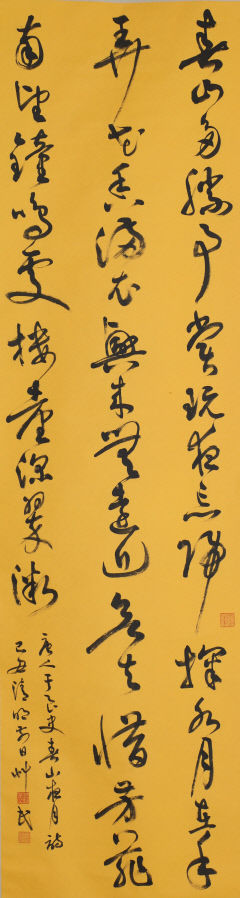 春山多勝事賞玩夜忘歸掬水月在手
弄花香滿衣興來無遠近欲去惜芳菲
南望鐘鳴處樓臺深翠微
唐人于良史春山夜月詩
己丑清明前日艸